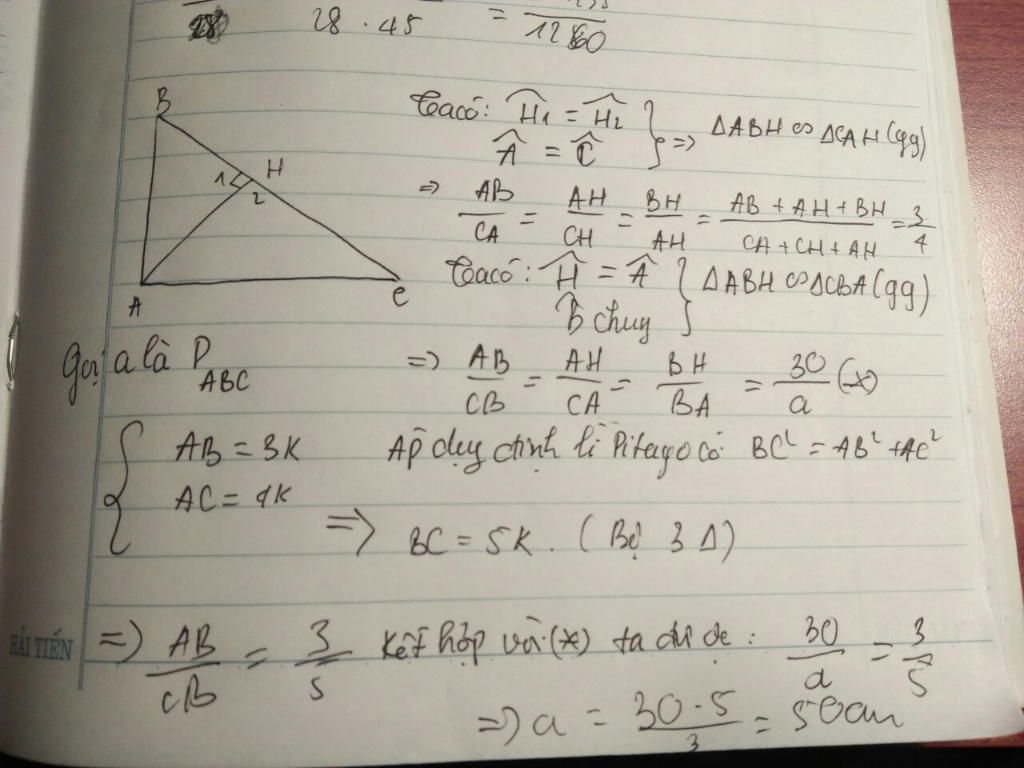 28 28 . 45 = 1260
B
Ta có: Ĥ1 = Ĥ2
Â = Ĉ } => ΔABH ∽ ΔCAH (gg)
H
1
2
=> AB/CA = AH/CH = BH/AH = (AB + AH + BH)/(CA + CH + AH) = 3/4
A
C
Ta có: Ĥ = Â
B̂ chug } ΔABH ∽ ΔCBA (gg)
Gọi a là P ABC
=> AB/CB = AH/CA = BH/BA = 30/a (*)
{ AB = 3K
AC = 4K
Áp dụg định lí Pitago có BC² = AB² + AC²
=> BC = 5K. (Bộ 3 Δ)
HẢI TIẾN
=> AB/CB = 3/5 Kết hợp với (*) ta đi đc : 30/a = 3/5
=> a = 30 . 5/3 = 50cm